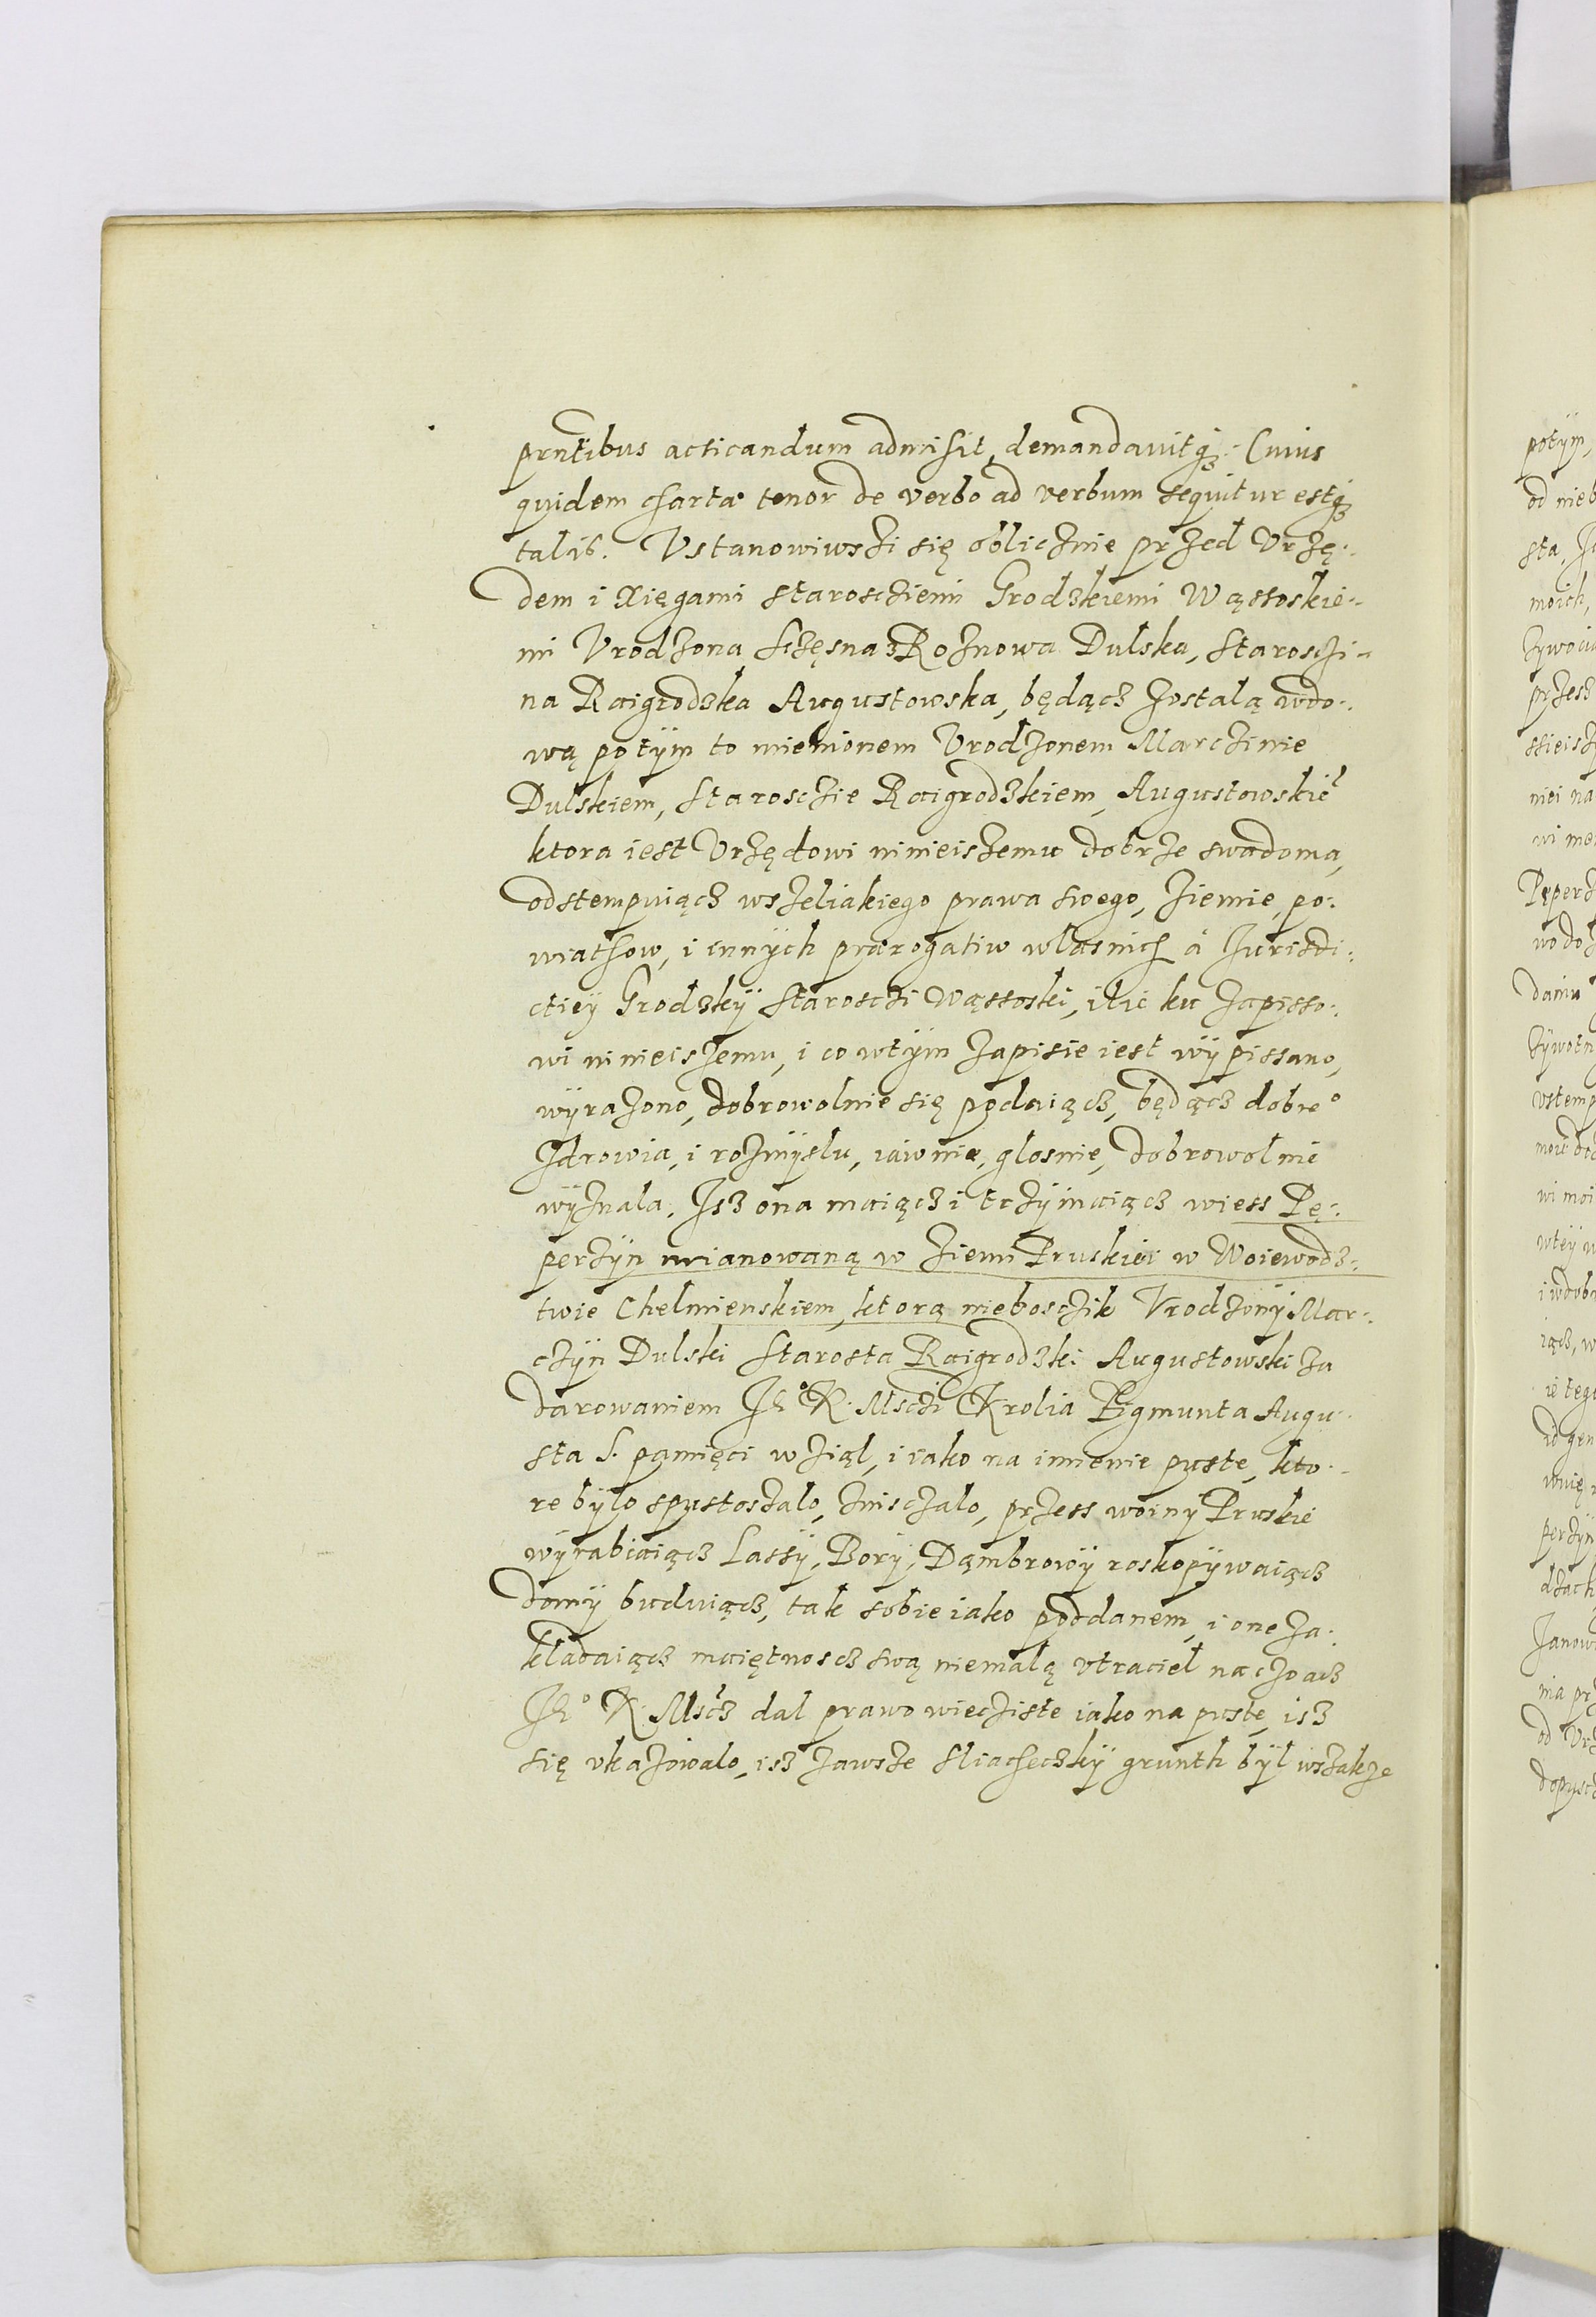 prntibus acticandum admisit, demandavitq3. Cuius
quidem chartæ tenor de verbo ad verbum sequitur estq3
talis. Vstanowiwszi się oblicznie przed Vrzę-
dem i Xięgami starosciemi Grodzkiemi Wąssoskie-
mi Vrodzona Sczęsna z Roznowa Dulska, starosczi-
na Raigrodzka Augustowska, będącz zostalą wdo-
wą potÿm to mienionem Vrodzonem Marczinie
Dulskiem, starosczie Raigrodzkiem, Augustowskiē
ktora iest Vrzędowi ninieiszemu dobrze swadoma,
odstempuiącz wszeliakiego prawa swego, ziemie, po-
wiathow, i innÿch prærogatiw wlasnich á Jurisdi-
ctieÿ Grodzkÿ staroschi Wąssoski, ilie ku zapisso-
wi ninieiszemu, i co wtÿm zapisie iest wÿpissano,
wÿrazono, dobrowolnie się podaiącz, będącz dobre°
zdrowia, i rozmÿslu, iawnie, glosnie, dobrowolnie
wÿznala. Isz ona maiącz i trzÿmaiącz wiess Pę-
perzÿn mianowaną w ziemi Pruskiei w Woiewodz-
twie Chelmienskiem, ktorą niebosczik Vrodzonÿ Mar-
czÿn Dulski starosta Raigrodzki Augustowski za
darowaniem Je° K. Msczi Krolia Zigmunta Augu-
sta S. pamięci wziąl, i iako na imienie puste, kto-
re bÿlo spustoszalo, zniszczalo, przess woinÿ Pruskie
wÿrabiaiącz Lassÿ, Borÿ, Dąmbrowÿ roskopÿwaiącz
domÿ buduiącz, tak sobie iako poddanem, i one za-
kladaiącz maiętnoscz swą niemalą vtraciel na czo acz
Je° K. Mscz dal prawo wieczÿste iako na puste, isz
się vkazowalo, isz zawsze sliacheczkÿ grunth bÿl wszakze